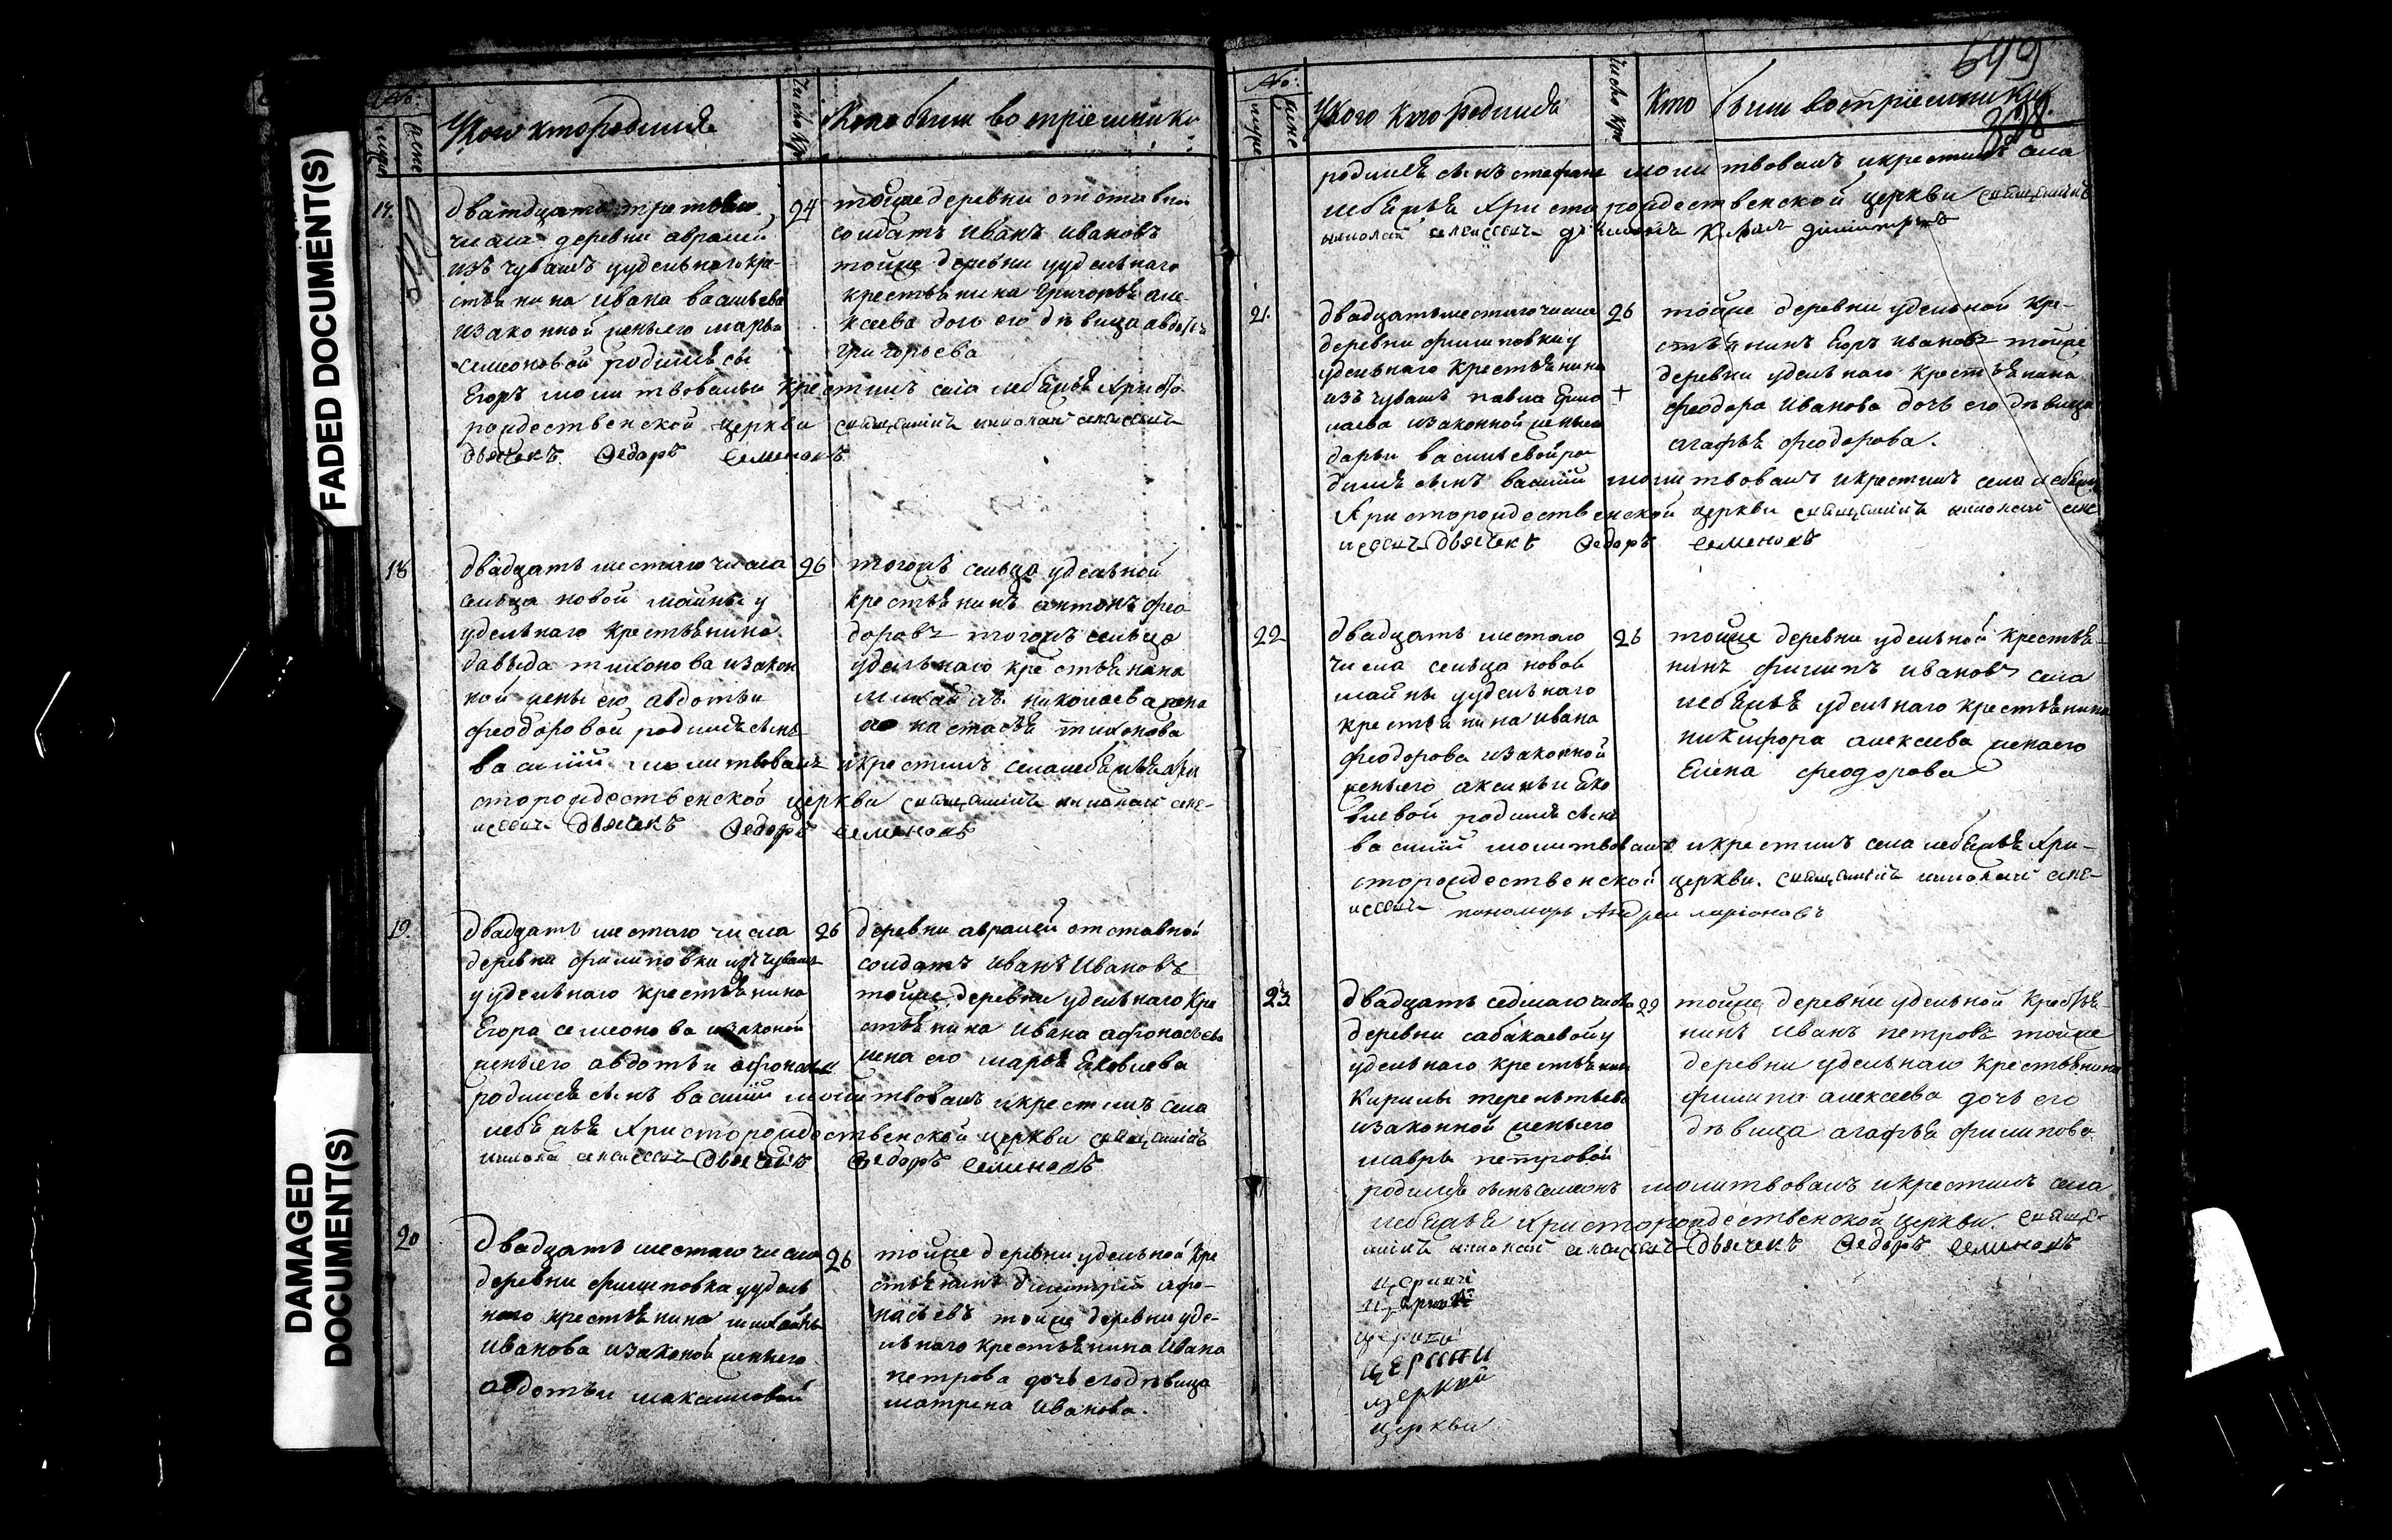 FADED DOCUMENT(S)
DAMAGED DOCUMENT(S)
У кого кто родился
Число кр
Кто были восприемники
17.
дватцать третьяго
24
числа деревни авралей
изъ чувашъ у удельнаго кре-
стьянина ивана васильева
изаконной жены его марьи
семеоновой родился сы
Егоръ молитвовалъ и крестилъ села лебяжья Христо
рождественской церкви священникъ николай алексеевъ
дьячекъ Федоръ Семеновъ
тойже деревни отставной
солдатъ иванъ ивановъ
тойже деревни удельнаго
крестьянина Григорья але-
ксеева дочь его девица авдотья
григорьева
18
двадцать шестаго числа
26
сельца новой майны у
удельнаго крестьянина
давыда тихонова изакон
ной жены его авдотьи
феодоровой родился сынъ
василий молитвовалъ и крестилъ села лебяжья Хри
сторождественской церкви священникъ николай але-
ксеевъ дьячекъ Федоръ Семеновъ
тогожъ сельца удельной
крестьянинъ антонъ фео
доровъ тогожъ сельца
удельнаго крестьянина
михайлъ николаева жена
его настасья тихонова
19.
двадцать шестаго числа
26
деревни филиповки изъ чувашъ
у удельнаго крестьянина
Егора семеонова изаконной
жены его авдотьи афонась
родился сынъ василий молитвовалъ и крестилъ села
лебяжья Христорождественской церкви священникъ
николай алексеевъ дьячекъ Федоръ Семеновъ
деревни авралей отставной
солдатъ иванъ Ивановъ
тойже деревни удельнаго кре
стьянина ивана афонасьева
жена его марья Яковлева
20
двадцать шестаго числа
26
деревни филиповка у удель
наго крестьянина михайлы
иванова изаконой жены его
авдотьи максимовой
тойже деревни удельной кре
стьянинъ димитрий афо-
насьевъ тойже деревни уде-
льнаго крестьянина Ивана
петрова дочь его девица
матрена Иванова.
649
У кого кто родился
Число кр
Кто были восприемники
родился сынъ стефанъ молитвовалъ и крестилъ села
лебяжья Христорождественской церкви священникъ
николай алексеевъ
21.
двадцать шестаго числа
26
деревни филиповки у
удельнаго крестьянина
изъ чувашъ павла Ермо
лаева изаконной жены его
дарьи васильевой ро
дился сынъ василий молитвовалъ и крестилъ села лебяжья
Христорождественской церкви священникъ николай але
ксеевъ дьячекъ Федоръ Семеновъ
тойже деревни удельной кре-
стьянинъ Егоръ ивановъ тойже
деревни удельнаго крестьянина
феодора Иванова дочь его девица
агафья феодорова.
22
двадцать шестаго
26
числа сельца новой
майны у удельнаго
крестьянина ивана
феодорова изаконной
жены его аксиньи Яко
влевой родился сынъ
василий молитвовалъ и крестилъ села лебяжья Хри-
сторождественской церкви. священникъ николай але-
ксеевъ пономарь Андрей ларионовъ
тойже деревни удельной крестья
нинъ филипъ ивановъ села
лебяжья удельнаго крестьянина
никифора алексеева жена его
Елена феодорова
23.
двадцать седмаго числа
29
деревни сабакаевой у
удельнаго крестьянина
Кирилы терентьева
изаконной жены его
мавры петровой
родился сынъ семеонъ молитвовалъ и крестилъ села
лебяжья Христорождественской церкви. священ-
никъ николай алексеевъ дьячекъ Федоръ Семеновъ
тойже деревни удельной крестья
нинъ иванъ петровъ тойже
деревни удельнаго крестьянина
филипа алексеева дочь его
девица агафья филипова.
церкви